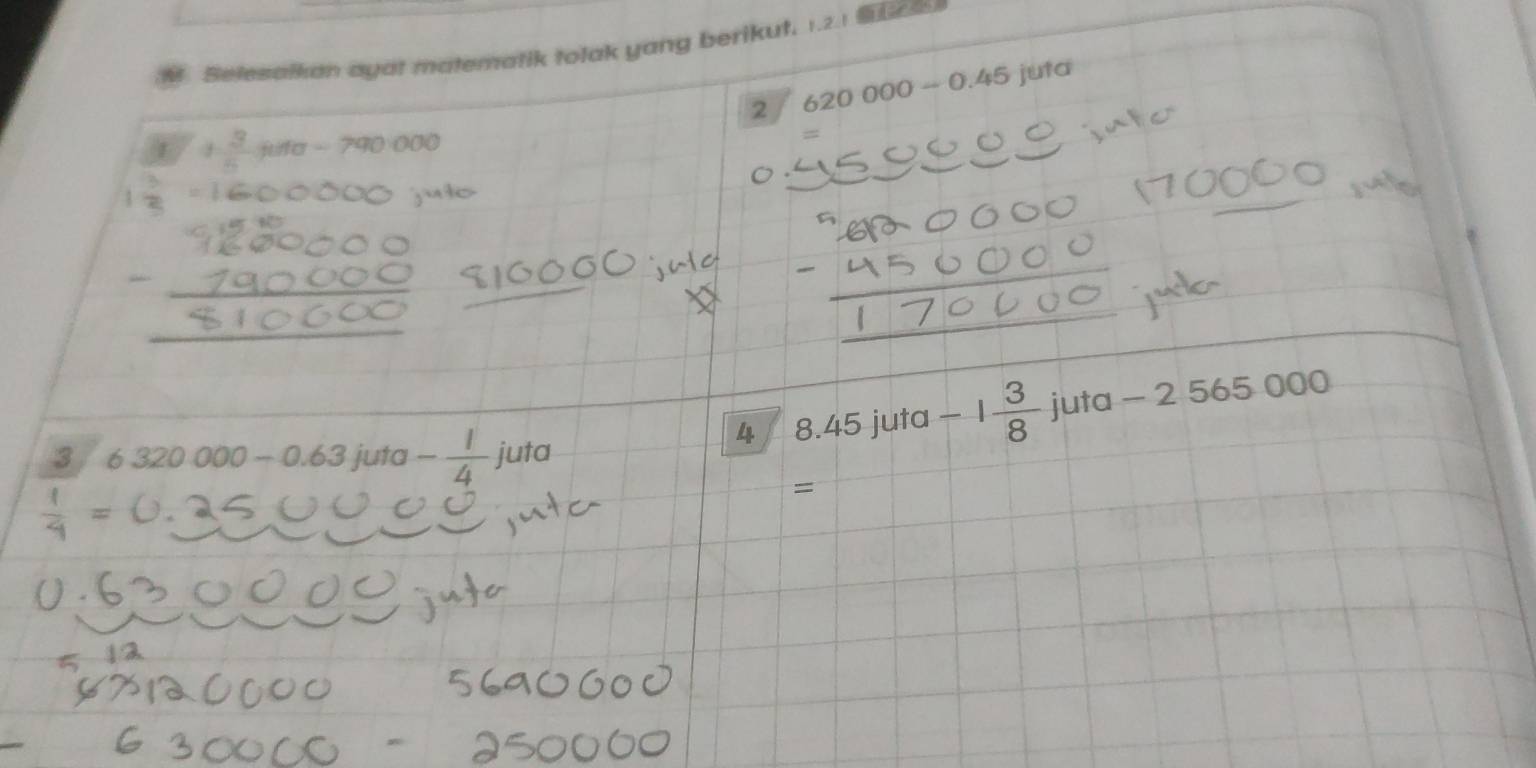 Selesaikan ayat matematik tolak yang berikut. 1.2.1
1 1 3/5 juta - 790 000
1 3/5 = 1600000 juta
1600000
- 790000
810000
810000 juta
2 620 000 - 0.45 juta
=
0.450000 juta
5 12
620000
- 450000
170000 juta
170000 juta
3 6 320 000 - 0.63 juta - 1/4 juta
1/4 = 0.250000 juta
0.630000 juta
5 12
6 3 12 0000
- 630000
5690000
- 250000
4 8.45 juta - 1 3/8 juta - 2 565 000
=